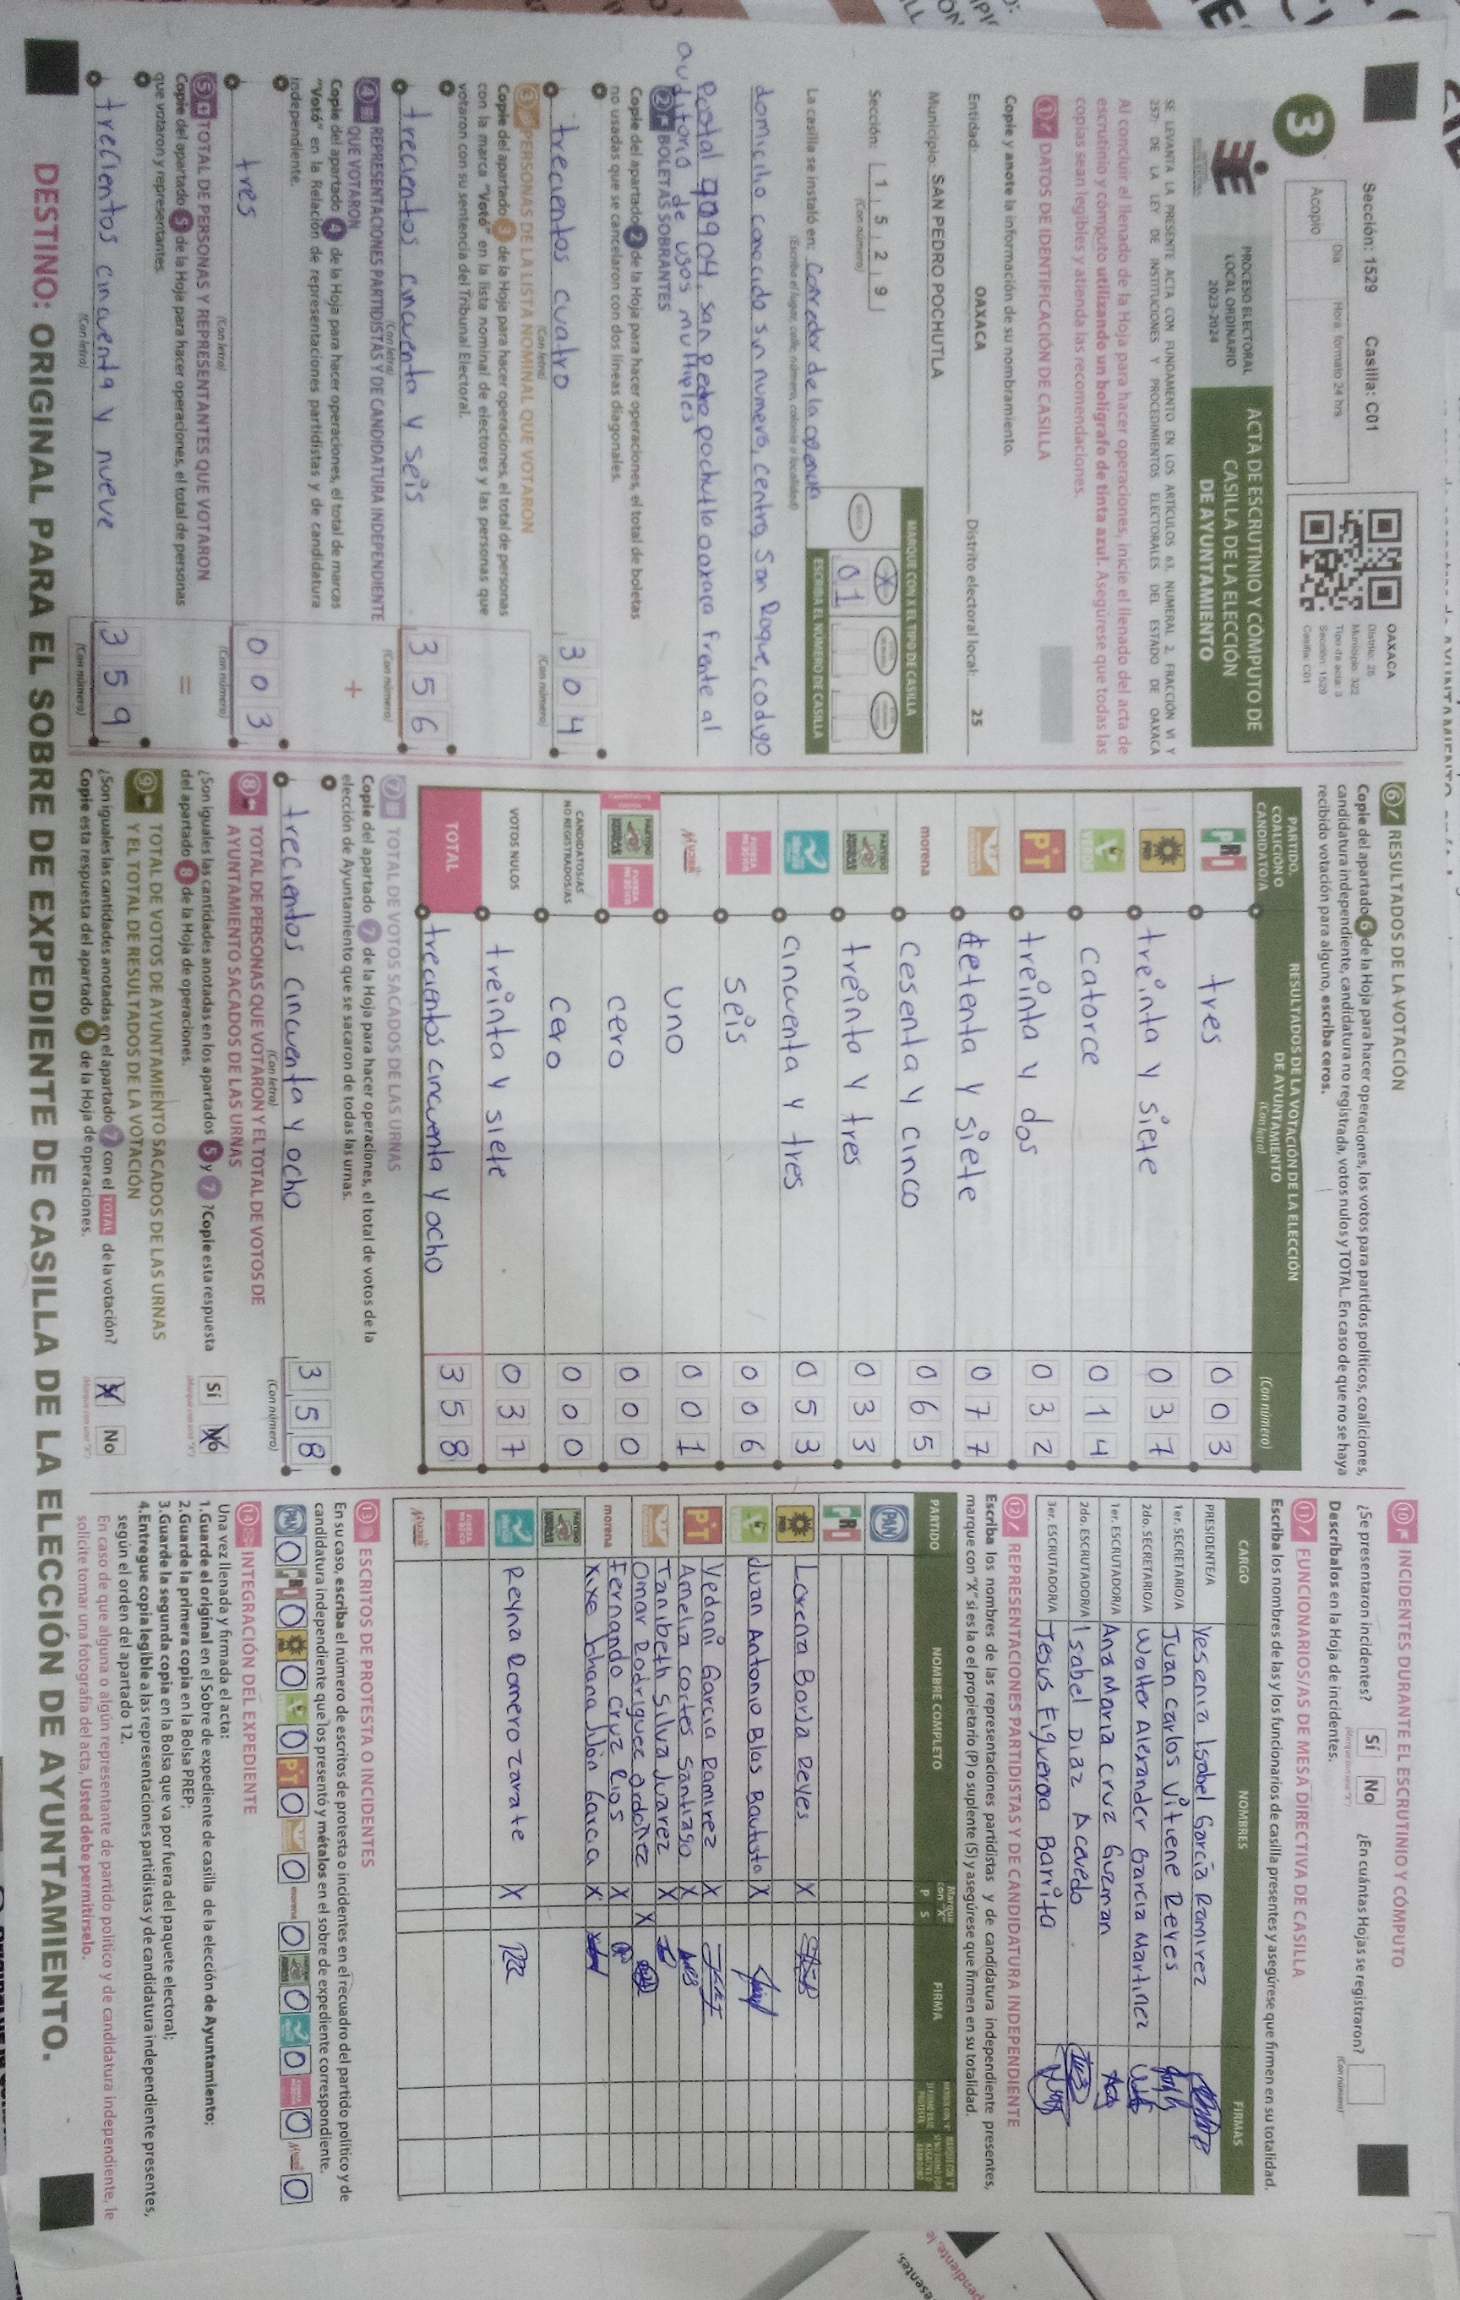 Sección: 1529 Casilla: C01
Día Hora: formato 24 hrs.
Acopio
OAXACA
Distrito: 25
Municipio: 322
Tipo de acta: 3
Sección: 1529
Casilla: C01
3
PROCESO ELECTORAL
LOCAL ORDINARIO
2023-2024
ACTA DE ESCRUTINIO Y CÓMPUTO DE
CASILLA DE LA ELECCIÓN
DE AYUNTAMIENTO
SE LEVANTA LA PRESENTE ACTA CON FUNDAMENTO EN LOS ARTÍCULOS 63, NUMERAL 2, FRACCIÓN VI Y
257; DE LA LEY DE INSTITUCIONES Y PROCEDIMIENTOS ELECTORALES DEL ESTADO DE OAXACA
Al concluir el llenado de la Hoja para hacer operaciones, inicie el llenado del acta de
escrutinio y cómputo utilizando un bolígrafo de tinta azul. Asegúrese que todas las
copias sean legibles y atienda las recomendaciones.
1 DATOS DE IDENTIFICACIÓN DE CASILLA
Copie y anote la información de su nombramiento.
Entidad: OAXACA Distrito electoral local: 25
Municipio: SAN PEDRO POCHUTLA
Sección: 1 5 2 9
(Con número)
MARQUE CON X EL TIPO DE CASILLA
X
ESCRIBA EL NÚMERO DE CASILLA
01
La casilla se instaló en: Corredor de la
(Escriba el lugar, calle, número, colonia o localidad)
domicilio conocido sin numero, centro, San Roque, codigo
Postal 90904, San Pedro pochutla oaxaca frente al
auditorio de usos multiples
2 BOLETAS SOBRANTES
Copie del apartado 2 de la Hoja para hacer operaciones, el total de boletas
no usadas que se cancelaron con dos líneas diagonales.
trecientos cuatro 304
(Con letra) (Con número)
3 PERSONAS DE LA LISTA NOMINAL QUE VOTARON
Copie del apartado 3 de la Hoja para hacer operaciones, el total de personas
con la marca "Votó" en la lista nominal de electores y las personas que
votaron con su sentencia del Tribunal Electoral.
trecientos cincuenta y seis 356
(Con letra) (Con número)
4 REPRESENTACIONES PARTIDISTAS Y DE CANDIDATURA INDEPENDIENTE
QUE VOTARON +
Copie del apartado 4 de la Hoja para hacer operaciones, el total de marcas
"Votó" en la Relación de representaciones partidistas y de candidatura
independiente.
tres 003
(Con letra) (Con número)
5 TOTAL DE PERSONAS Y REPRESENTANTES QUE VOTARON =
Copie del apartado 5 de la Hoja para hacer operaciones, el total de personas
que votaron y representantes.
trecientos cincuenta y nueve 359
(Con letra) (Con número)
6 RESULTADOS DE LA VOTACIÓN
Copie del apartado 6 de la Hoja para hacer operaciones, los votos para partidos políticos, coaliciones,
candidatura independiente, candidatura no registrada, votos nulos y TOTAL. En caso de que no se haya
recibido votación para alguno, escriba ceros.
PARTIDO, COALICIÓN O CANDIDATO/A RESULTADOS DE LA VOTACIÓN DE LA ELECCIÓN DE AYUNTAMIENTO (Con letra) (Con número)
PRI tres 003
PRD treinta y siete 037
VERDE catorce 014
PT treinta y dos 032
detenta y siete 077
morena cesenta y cinco 065
treinta y tres 033
cincuenta y tres 053
FUERZA seis 006
Mujer uno 001
cero 000
CANDIDATOS/AS NO REGISTRADOS/AS cero 000
VOTOS NULOS treinta y siete 037
TOTAL trecientos cincuenta y ocho 358
7 TOTAL DE VOTOS SACADOS DE LAS URNAS
Copie del apartado 7 de la Hoja para hacer operaciones, el total de votos de la
elección de Ayuntamiento que se sacaron de todas las urnas.
trecientos cincuenta y ocho 358
(Con letra) (Con número)
8 TOTAL DE PERSONAS QUE VOTARON Y EL TOTAL DE VOTOS DE
AYUNTAMIENTO SACADOS DE LAS URNAS
¿Son iguales las cantidades anotadas en los apartados 5 y 7? Copie esta respuesta
del apartado 8 de la Hoja de operaciones.
Sí No
9 TOTAL DE VOTOS DE AYUNTAMIENTO SACADOS DE LAS URNAS
Y EL TOTAL DE RESULTADOS DE LA VOTACIÓN
¿Son iguales las cantidades anotadas en el apartado 7 con el TOTAL de la votación?
Copie esta respuesta del apartado 9 de la Hoja de operaciones.
X No
10 INCIDENTES DURANTE EL ESCRUTINIO Y CÓMPUTO
¿Se presentaron incidentes? Sí No ¿En cuántas Hojas se registraron?
(Con número)
Descríbalos en la Hoja de incidentes.
11 FUNCIONARIOS/AS DE MESA DIRECTIVA DE CASILLA
Escriba los nombres de las y los funcionarios de casilla presentes y asegúrese que firmen en su totalidad.
CARGO NOMBRES FIRMAS
PRESIDENTE/A Yesenia Isabel García Ramirez
1er. SECRETARIO/A Juan Carlos Vitiene Reyes
2do. SECRETARIO/A Walter Alexander Garcia Martinez
1er. ESCRUTADOR/A Ana Maria Cruz Guzman
2do. ESCRUTADOR/A Isabel Diaz Acevedo
3er. ESCRUTADOR/A Jesus Figueroa Barrita
12 REPRESENTACIONES PARTIDISTAS Y DE CANDIDATURA INDEPENDIENTE
Escriba los nombres de las representaciones partidistas y de candidatura independiente presentes,
marque con "X" si es la o el propietario (P) o suplente (S) y asegúrese que firmen en su totalidad.
PARTIDO NOMBRE COMPLETO Marque con "X" P S FIRMA
PAN
PRI
PRD Lorena Borja Reyes X
VERDE Juan Antonio Blas Bautista X
PT Yedani Garcia Ramirez X
Amelia Cortes Santiago X
Tanibeth Silva Juarez X
Omar Rodriguez Ordoñez X
morena Fernando Cruz Rios X
Xixe Johana Garca X
Reyna Romero Zarate X
FUERZA
Mujer
13 ESCRITOS DE PROTESTA O INCIDENTES
En su caso, escriba el número de escritos de protesta o incidentes en el recuadro del partido político y de
candidatura independiente que los presentó y métalos en el sobre de expediente correspondiente.
PAN 0 PRI 0 0 0 PT 0 0 morena 0 0 0 0 0
14 INTEGRACIÓN DEL EXPEDIENTE
Una vez llenada y firmada el acta:
1.Guarde el original en el Sobre de expediente de casilla de la elección de Ayuntamiento;
2.Guarde la primera copia en la Bolsa PREP;
3.Guarde la segunda copia en la Bolsa que va por fuera del paquete electoral;
4.Entregue copia legible a las representaciones partidistas y de candidatura independiente presentes,
según el orden del apartado 12.
En caso de que alguna o algún representante de partido político y de candidatura independiente, le
solicite tomar una fotografía del acta, Usted debe permitírselo.
DESTINO: ORIGINAL PARA EL SOBRE DE EXPEDIENTE DE CASILLA DE LA ELECCIÓN DE AYUNTAMIENTO.